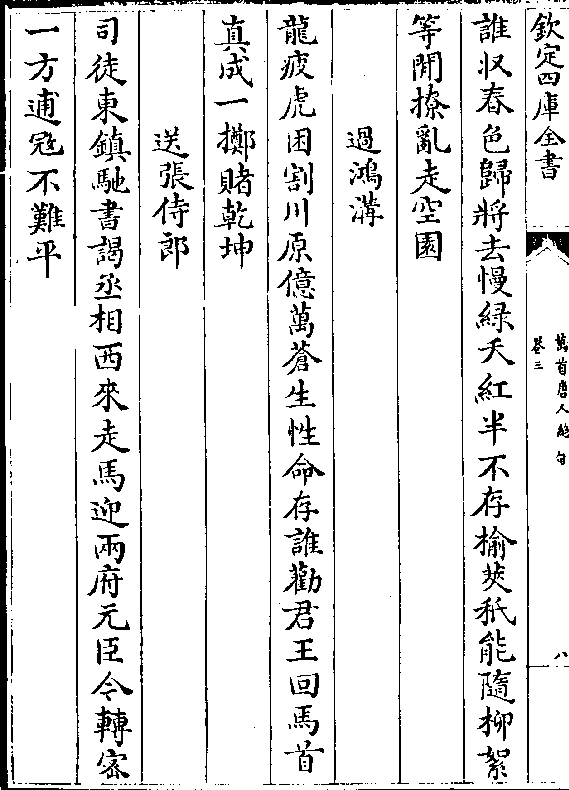 欽定四庫全書
萬首唐人絶句
卷三
八
誰収春色歸將去慢緑夭紅半不存榆莢秖能隨柳絮
等閒撩亂走空園
過鴻溝
龍疲虎困割川原億萬蒼生性命存誰勸君王回馬首
真成一擲賭乾坤
送張侍郎
司徒東鎮馳書謁丞相西來走馬迎兩府元臣令轉密
一方逋寇不難平